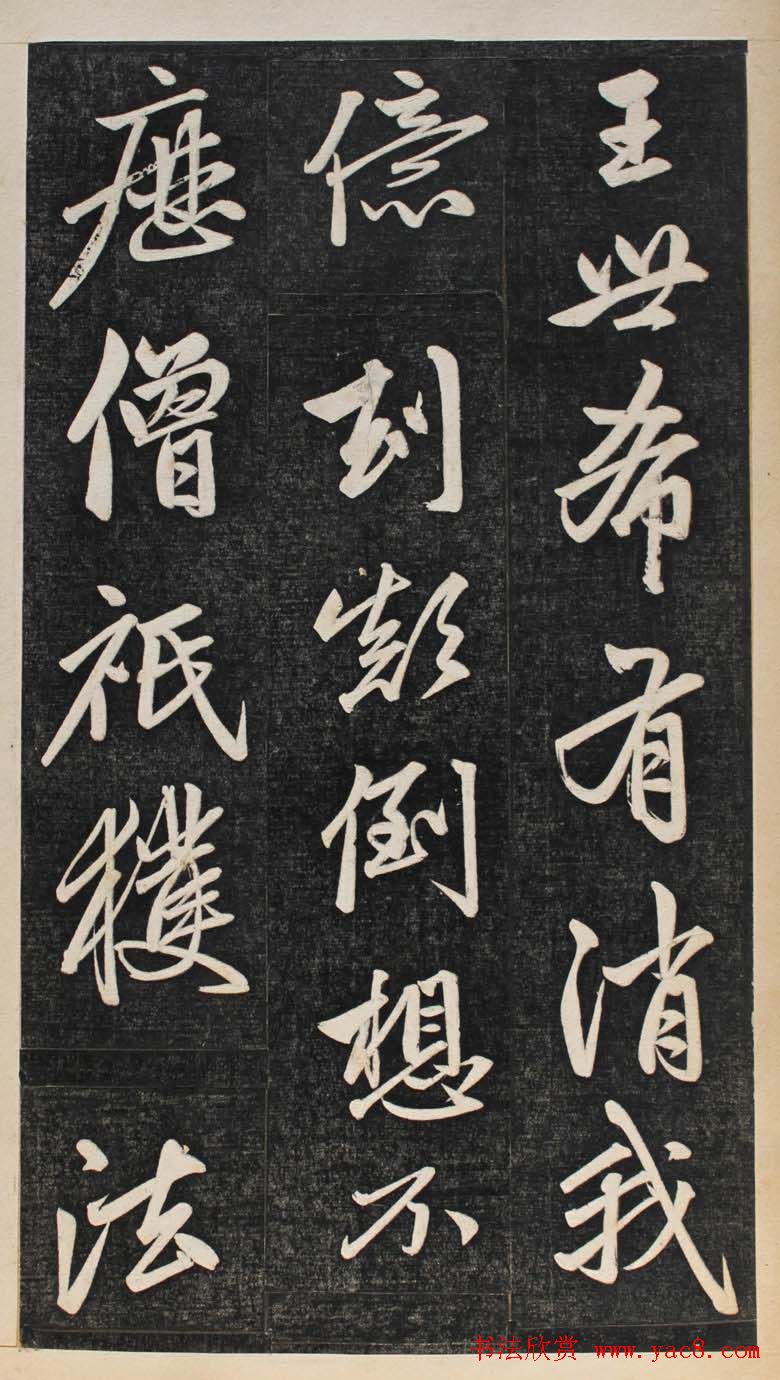 王世希有消我
億刼顛倒想不
歷僧祇穫法
书法欣赏 www.yac8.com